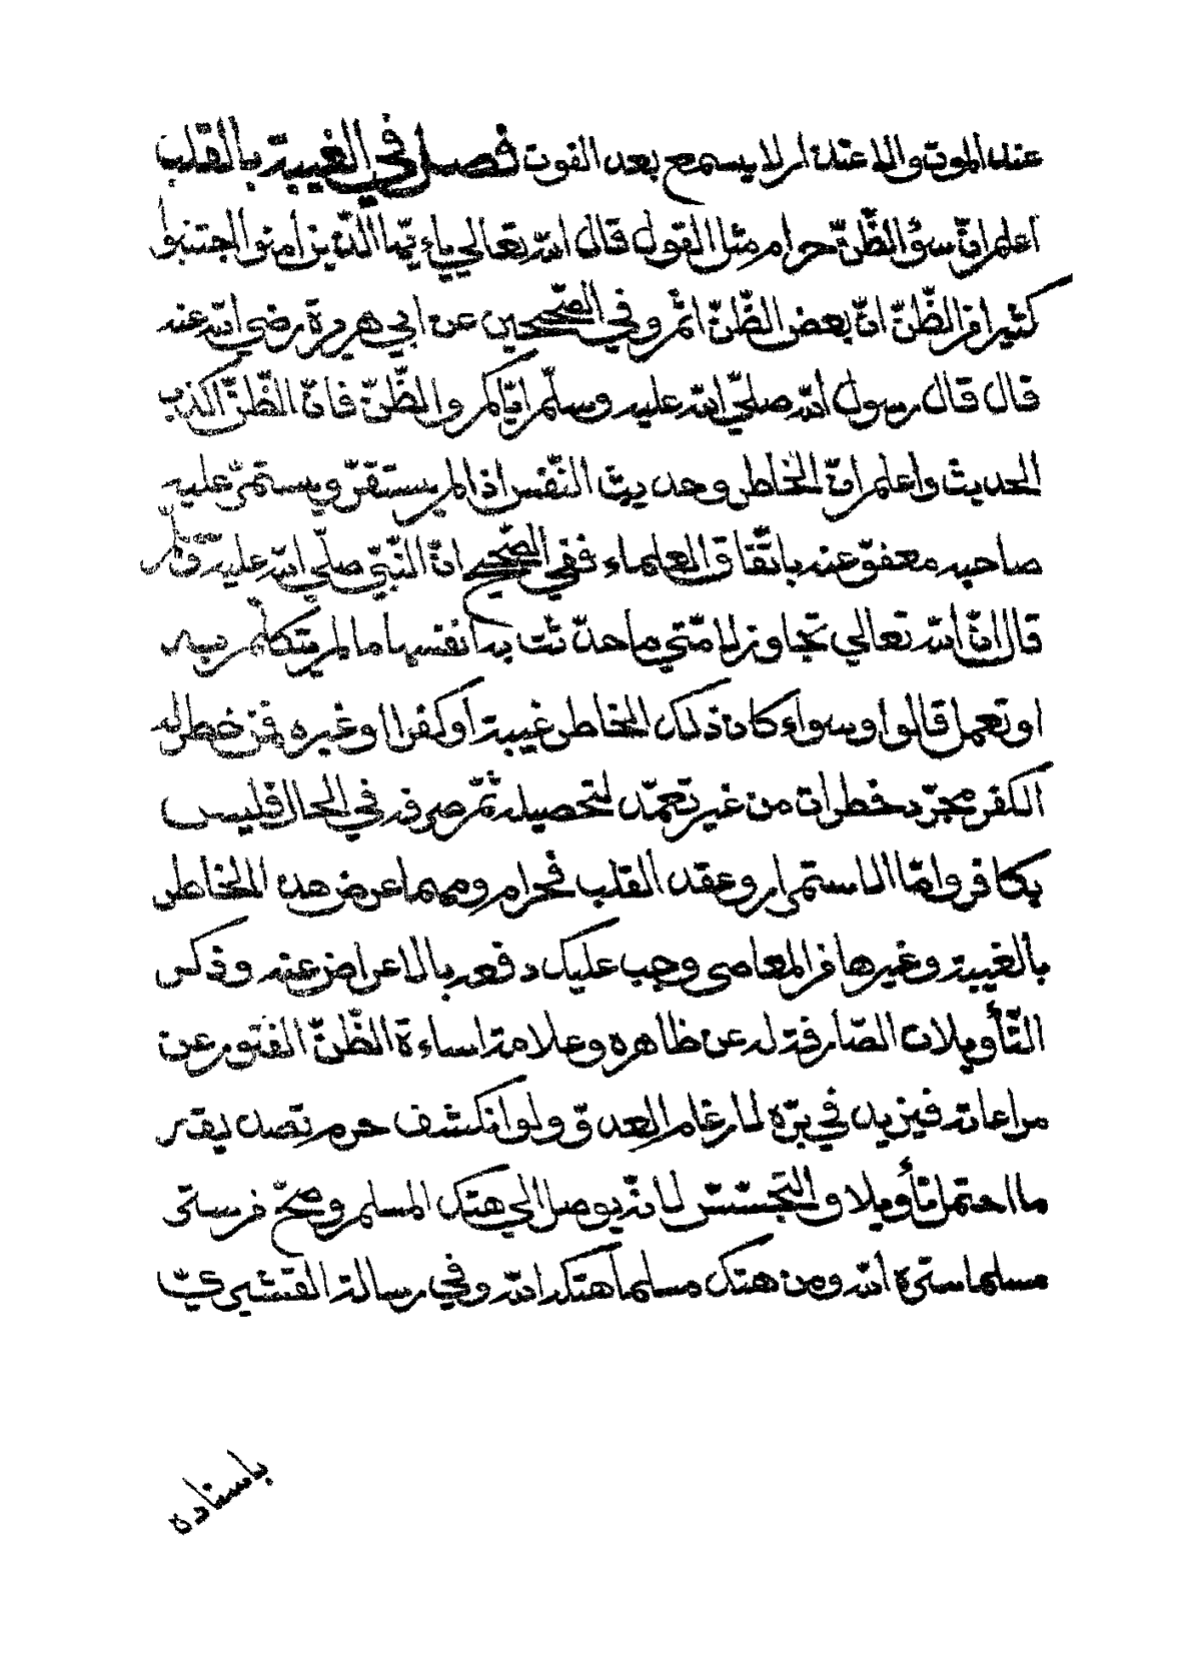 عند الموت والاعتذار لا يسمح بعد الفوت فصل في الغيبة بالقلب
اعلم انّ سوُ الظّنّ حرام مثل القول قال الله تعالي ياءيّها الّذين امنوا اجتنبوا
كثيرا من الظّنّ انّ بعض الظّنّ اثم وفي الصّحيحين عن ابي هريرة رضي الله عنه
قال قال رسول الله صليّ الله عليه وسلّم ايّاكم والظّنّ فانّ الظّنّ اكذب
الحديث واعلم انّ الخاطر وحديث النّفس اذا لم يستقرّ ويستمرّ عليه
صاحبه معفوّ عنه باتّفاق العلماء ففي الصّحيح انّ النّبيّ صليّ الله عليه وسلّم
قال انّ الله تعالي تجاوز لامّتي ما حدّثت به انفسها ما لم يتكلّم به
او تعمل قالوا وسواء كان ذلك الخاطر غيبة او كفرا او غيره فمن خطر له
الكفر مجرّد خطرات من غير تعمّد لتحصيله ثمّ صرفه في الحال فليس
بكافر وامّا الاستمرار وعقد القلب فحرام ومهما عرض هذا الخاطر
بالغيبة وغيرها من المعاصي وجب عليك دفعه بالاعراض عنه وذكر
التّأويلات الصّارفة له عن ظاهره وعلامة اساءة الظّنّ الفتور عن
مراعاته فيزيد في برّه لارغام العدوّ ولو انكشف حرم تصديقه
ما احتمل تأويلا والتجسّس لانّه يوصل الي هتك المسلم وصحّ من ستر
مسلما ستره الله ومن هتك مسلما هتكه الله وفي رسالة القشيريّ
باسناده